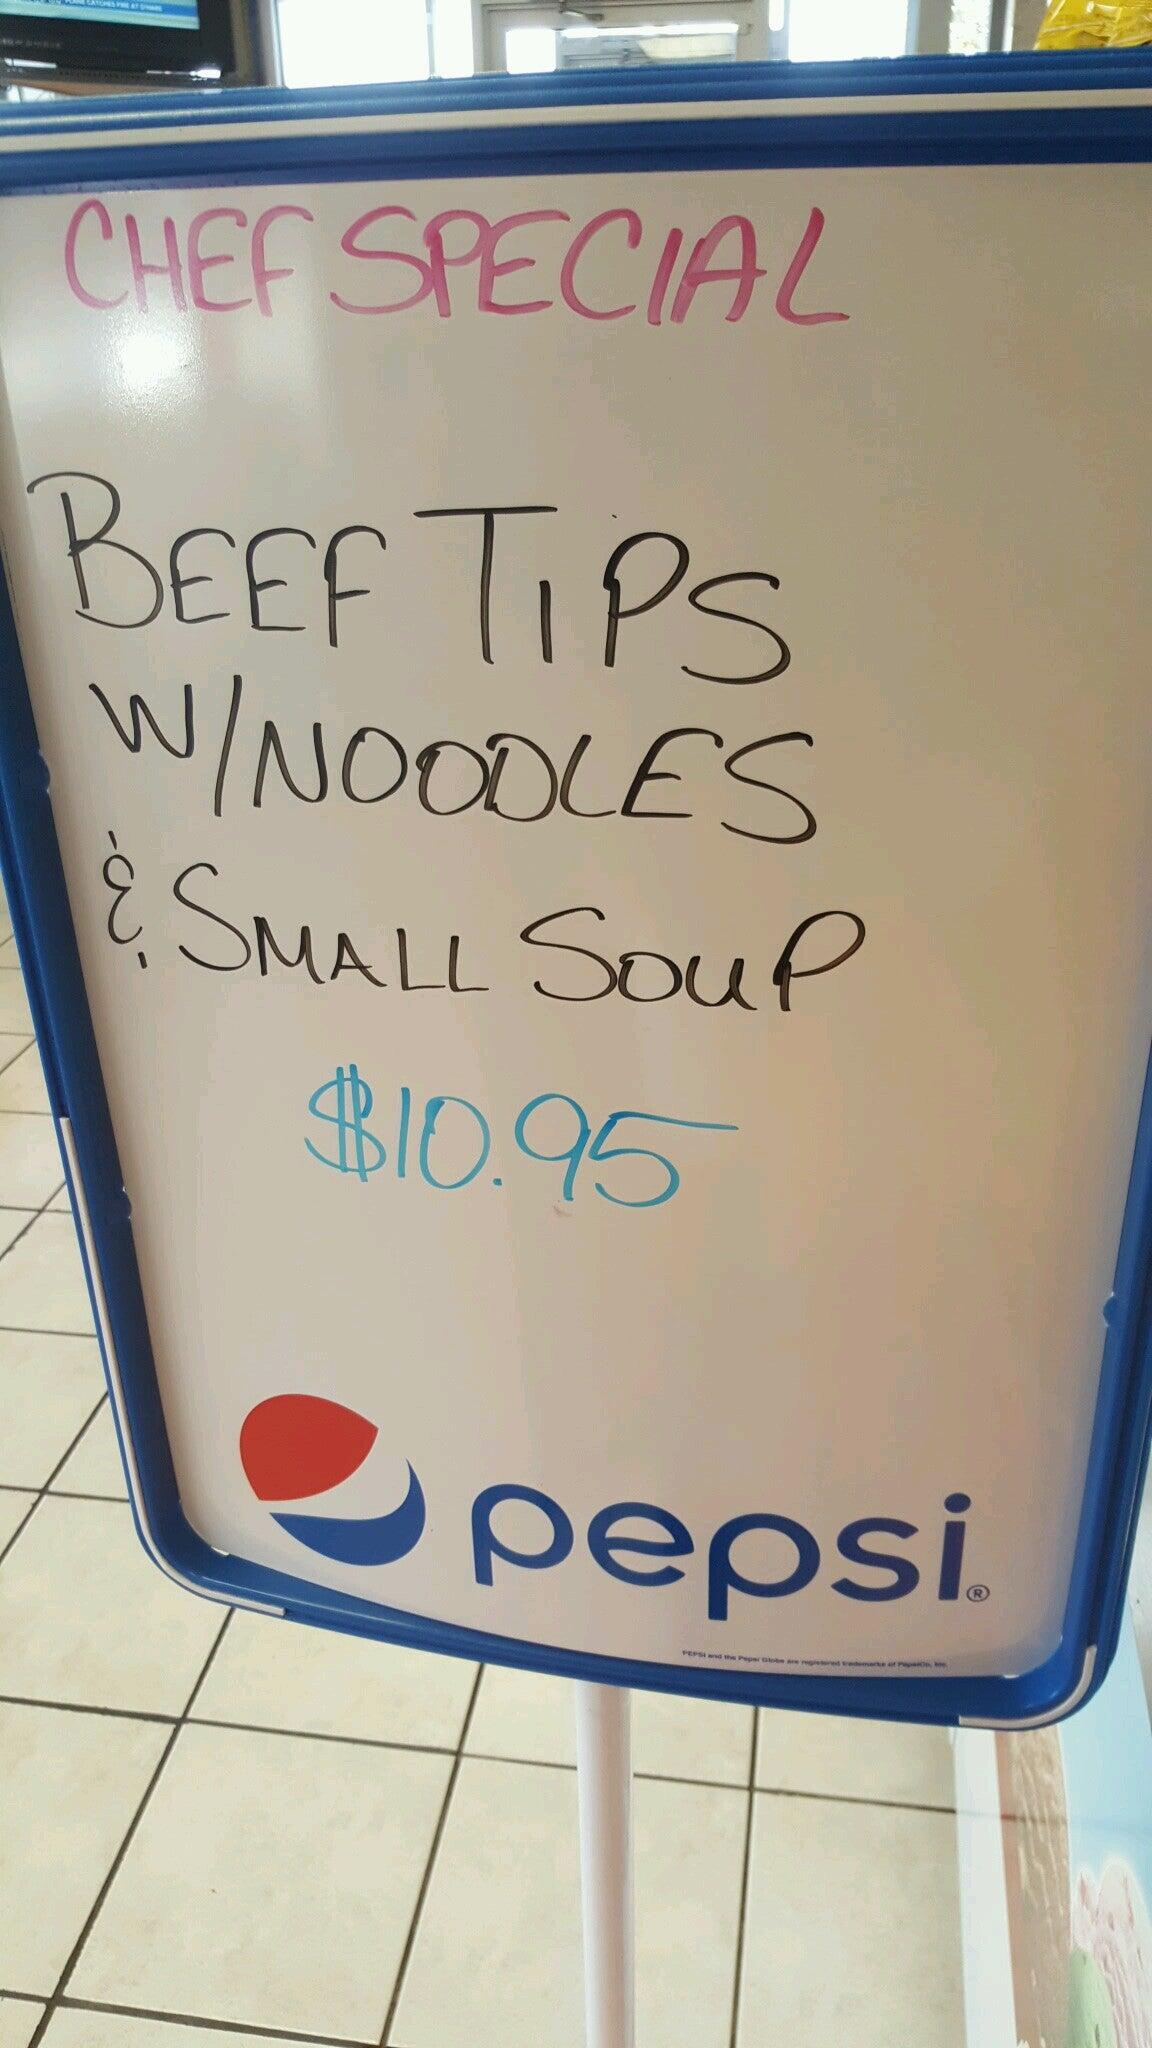 PLANE CATCHES FIRE AT O'HARE
CHEF SPECIAL
BEEF TIPS
W/NOODLES
& SMALL SOUP
$10.95
pepsi®
PEPSI and the Pepsi Globe are registered trademarks of PepsiCo, Inc.